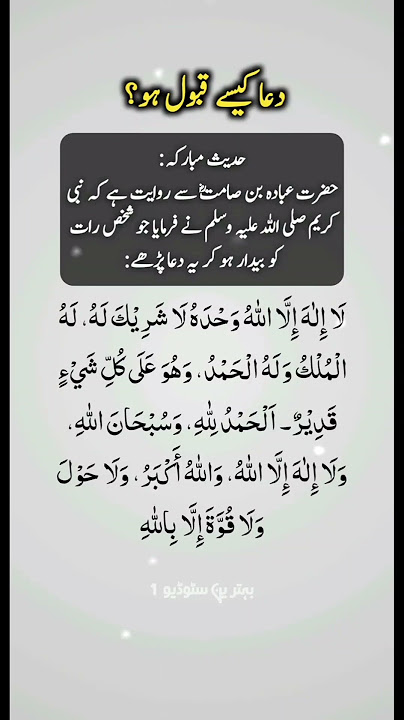 دعا کیسے قبول ہو؟
حدیث مبارکہ:
حضرت عبادہ بن صامتؓ سے روایت ہے کہ نبی
کریم صلی اللہ علیہ وسلم نے فرمایا جو شخص رات
کو بیدار ہو کر یہ دعا پڑھے:
لَا إِلٰهَ إِلَّا اللّٰهُ وَحْدَهُ لَا شَرِيْكَ لَهُ، لَهُ
الْمُلْكُ وَلَهُ الْحَمْدُ، وَهُوَ عَلَى كُلِّ شَيْءٍ
قَدِيْرٌ۔ اَلْحَمْدُ لِلّٰهِ، وَسُبْحَانَ اللّٰهِ،
وَلَا إِلٰهَ إِلَّا اللّٰهُ، وَاللّٰهُ أَكْبَرُ، وَلَا حَوْلَ
وَلَا قُوَّةَ إِلَّا بِاللّٰهِ
بہترین سٹوڈیو 1